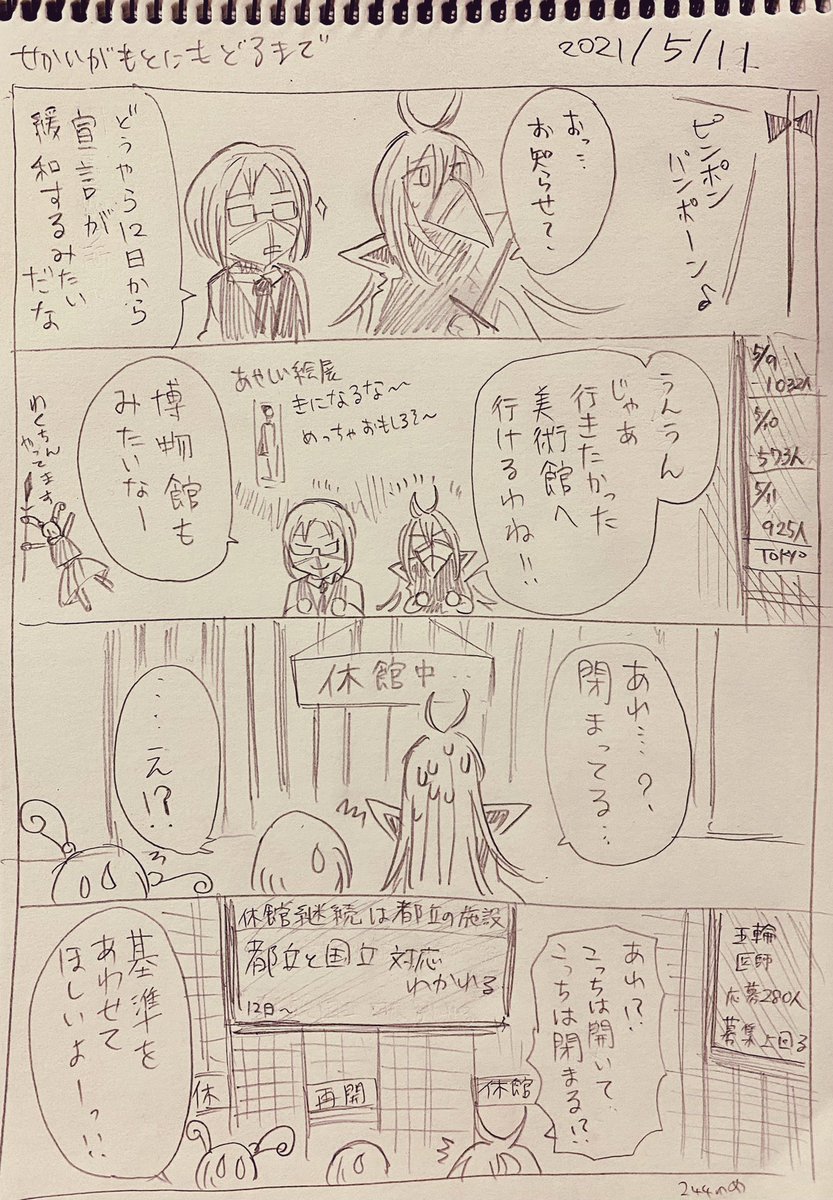 せかいがもとにもどるまで
2021/5/11
ピンポン
パンポーン♪
おっ…
お知らせで、
どうやら12日から
宣言が
緩和するみたい
だな
5/9
1032人
5/10
573人
5/11
925人
TOKYO
うんうん
じゃあ
行きたかった
美術館へ
行けるわね!!
あやしい絵展
きになるな〜
めっちゃおもしろそ〜
博物館も
みたいなー
わくちん
やってます
休館中…
あれ…?、
閉まってる…
……え!?
五輪
医師
応募280人
募集上回る
あれ!?
こっちは開いて
こっちは閉まる!?
休館継続は都立の施設
都立と国立 対応
わかれる
12日〜
休館
再開
休
基準を
あわせて
ほしいよーっ!!
244日め